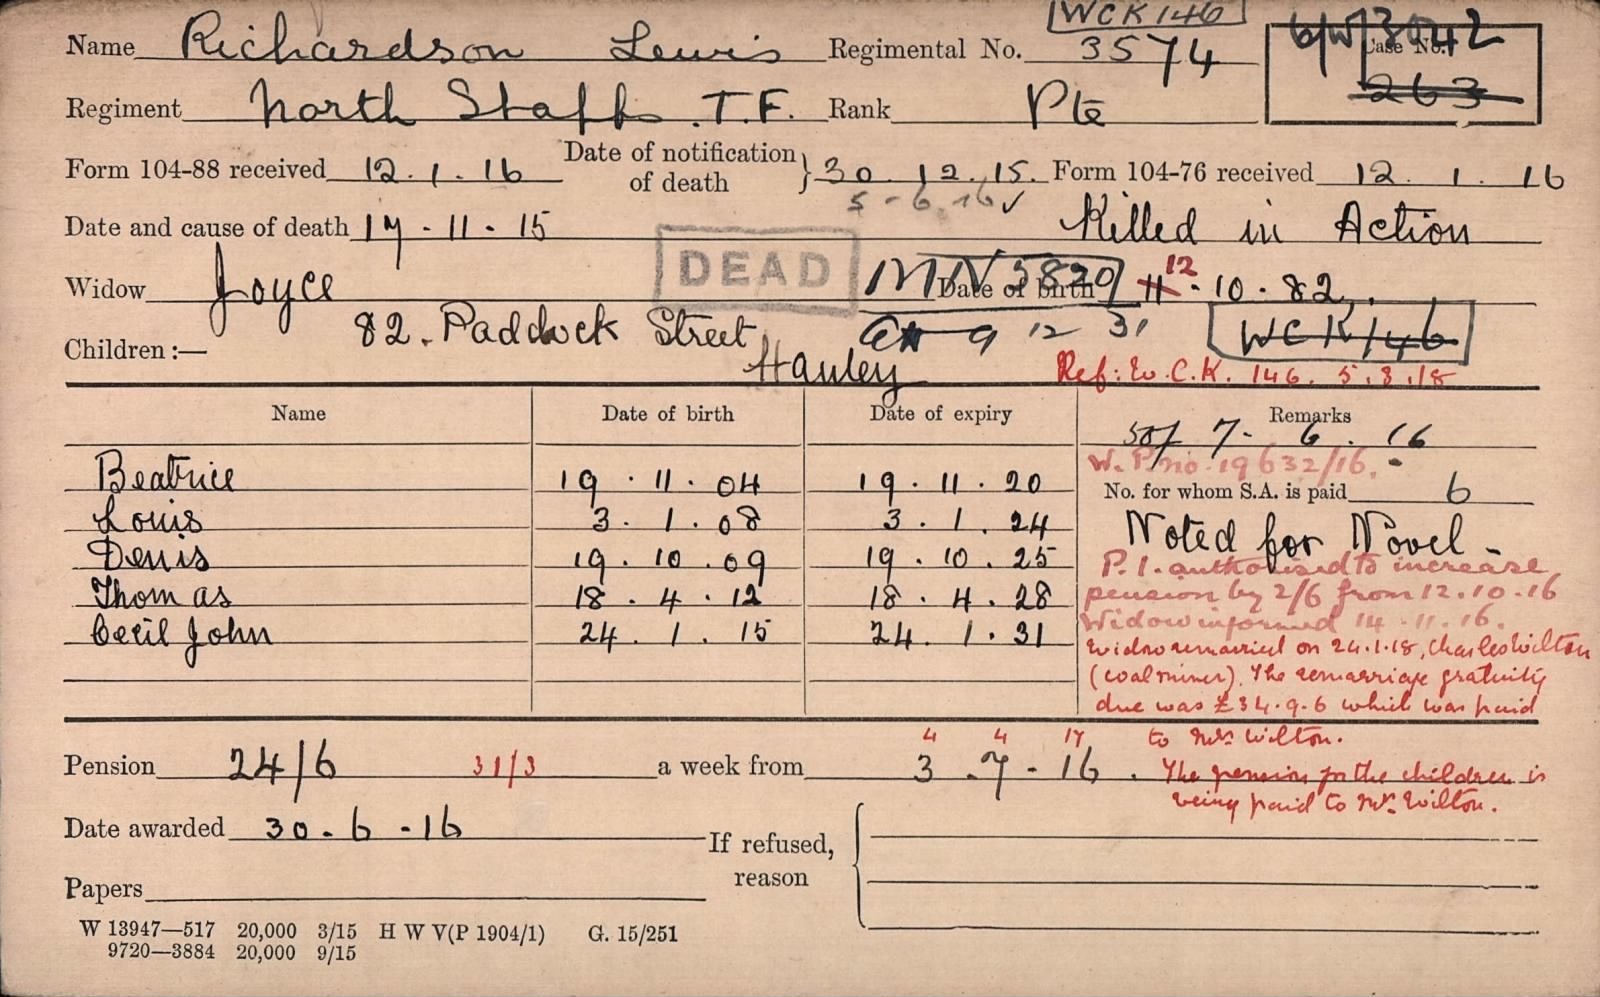 WCK146
Name Richardson Lewis Regimental No. 3574 Case No. 6/W/3042
263
Regiment North Staffs. T.F. Rank Pte
Form 104-88 received 12.1.16 Date of notification of death } 30.12.15. Form 104-76 received 12.1.16
5-6.16 ✓
Date and cause of death 17.11.15 Killed in Action
DEAD
Widow Joyce MN 5820 Date of birth 11 12.10.82.
82. Paddock Street 9 12 31 WCK146
Children :—
Hanley Ref: W.C.K. 146. 5.8.18
Name Date of birth Date of expiry Remarks
7-6.16
W.P. no. 19632/16.
Beatrice 19.11.04 19.11.20 No. for whom S.A. is paid 6
Louis 3.1.08 3.1.24 Noted for Novel-
Denis 19.10.09 19.10.25 P.1. authorised to increase
Thomas 18.4.12 18.4.28 pension by 2/6 from 12.10.16
Widow informed 14.11.16.
Cecil John 24.1.15 24.1.31 Widow remarried on 24.1.18, Charles Wilton
(coal miner). The remarriage gratuity
due was £34.9.6 which was paid
4 4 17 to Mrs Wilton.
Pension 24/6 31/3 a week from 3.7-16. The pension for the children is
being paid to Mrs. Wilton.
Date awarded 30-6-16
If refused, reason
Papers
W 13947—517 20,000 3/15 H W V(P 1904/1) G. 15/251
9720—3884 20,000 9/15